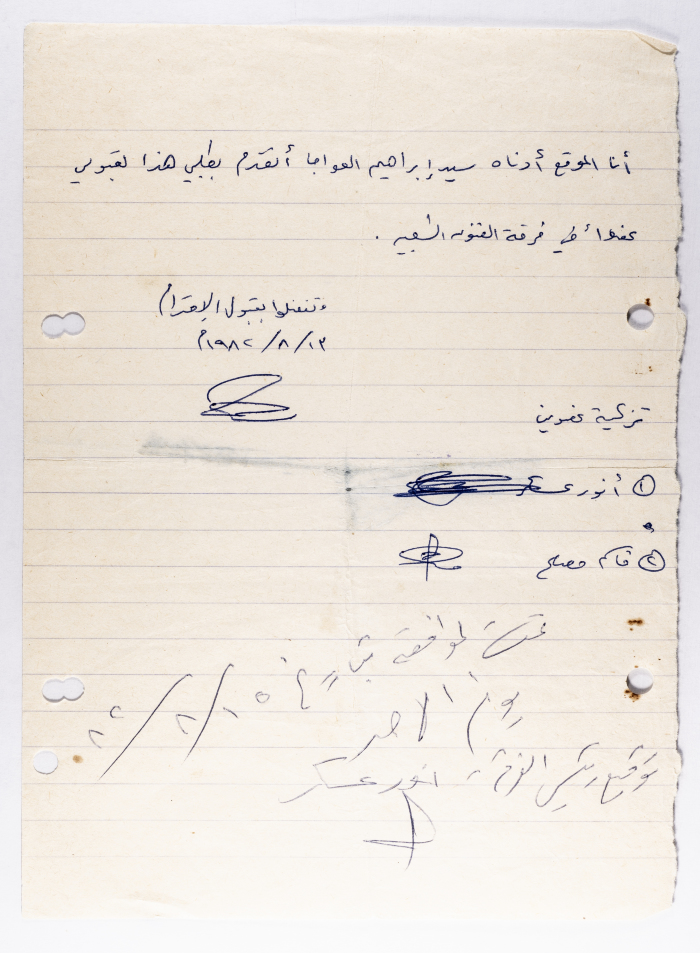 أنا الموقع أدناه سيد إبراهيم العواجا أتقدم بطلبي هذا لقبولي
عضواً في فرقة الفنون الشعبيه .
وتفضلوا بقبول الإحترام
١٣/٨/١٩٨٢م
تزكية عضوين
① أنور عسكر
② قاسم مصلح
تمت الموافقه بتاريخ ١٥/٨/٨٢
يوم الأحد
توقيع رئيس الفرقة انور عسكر